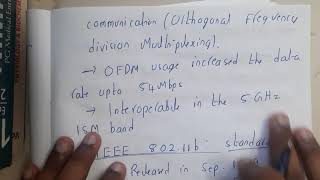 communication (Orthogonal Frequency
division Multiplexing).
→ OFDM usage increased the data
rate upto 54Mbps
→ Interoperable in the 5 GHz
ISM band
IEEE 802.11b standard
Released in Sep.